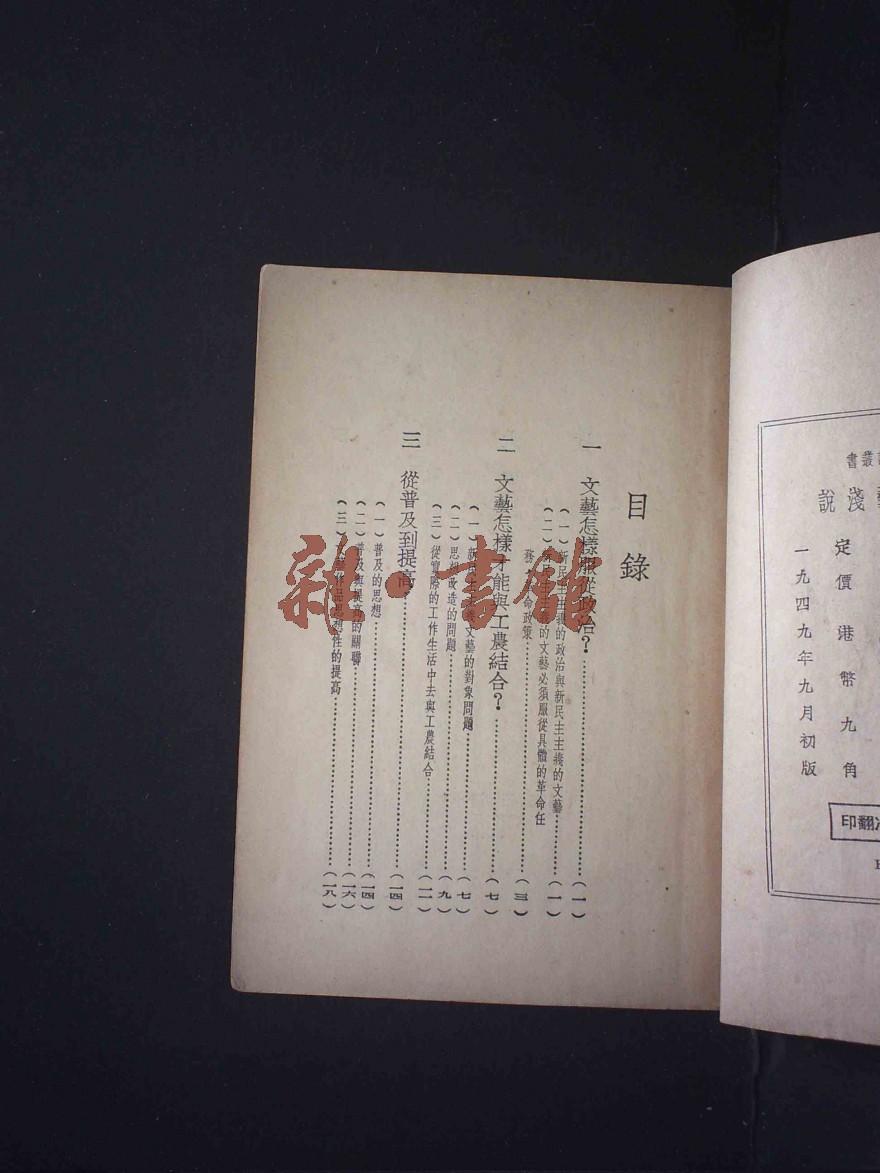 叢書
淺說
定價港幣九角
一九四九年九月初版
翻印
目錄
一 文藝怎樣服從政治?……(一)
(一)新民主主義的政治與新民主主義的文藝……(一)
(二)新民主主義的文藝必須服從具體的革命任
務 革命政策……(三)
二 文藝怎樣才能與工農結合?……(七)
(一)新民主主義文藝的對象問題……(七)
(二)思想改造的問題……(九)
(三)從實際的工作生活中去與工農結合……(一二)
三 從普及到提高……(一四)
(一)普及的思想……(一四)
(二)普及與提高的關聯……(一六)
(三)作品思想性的提高……(一八)
雜·書館